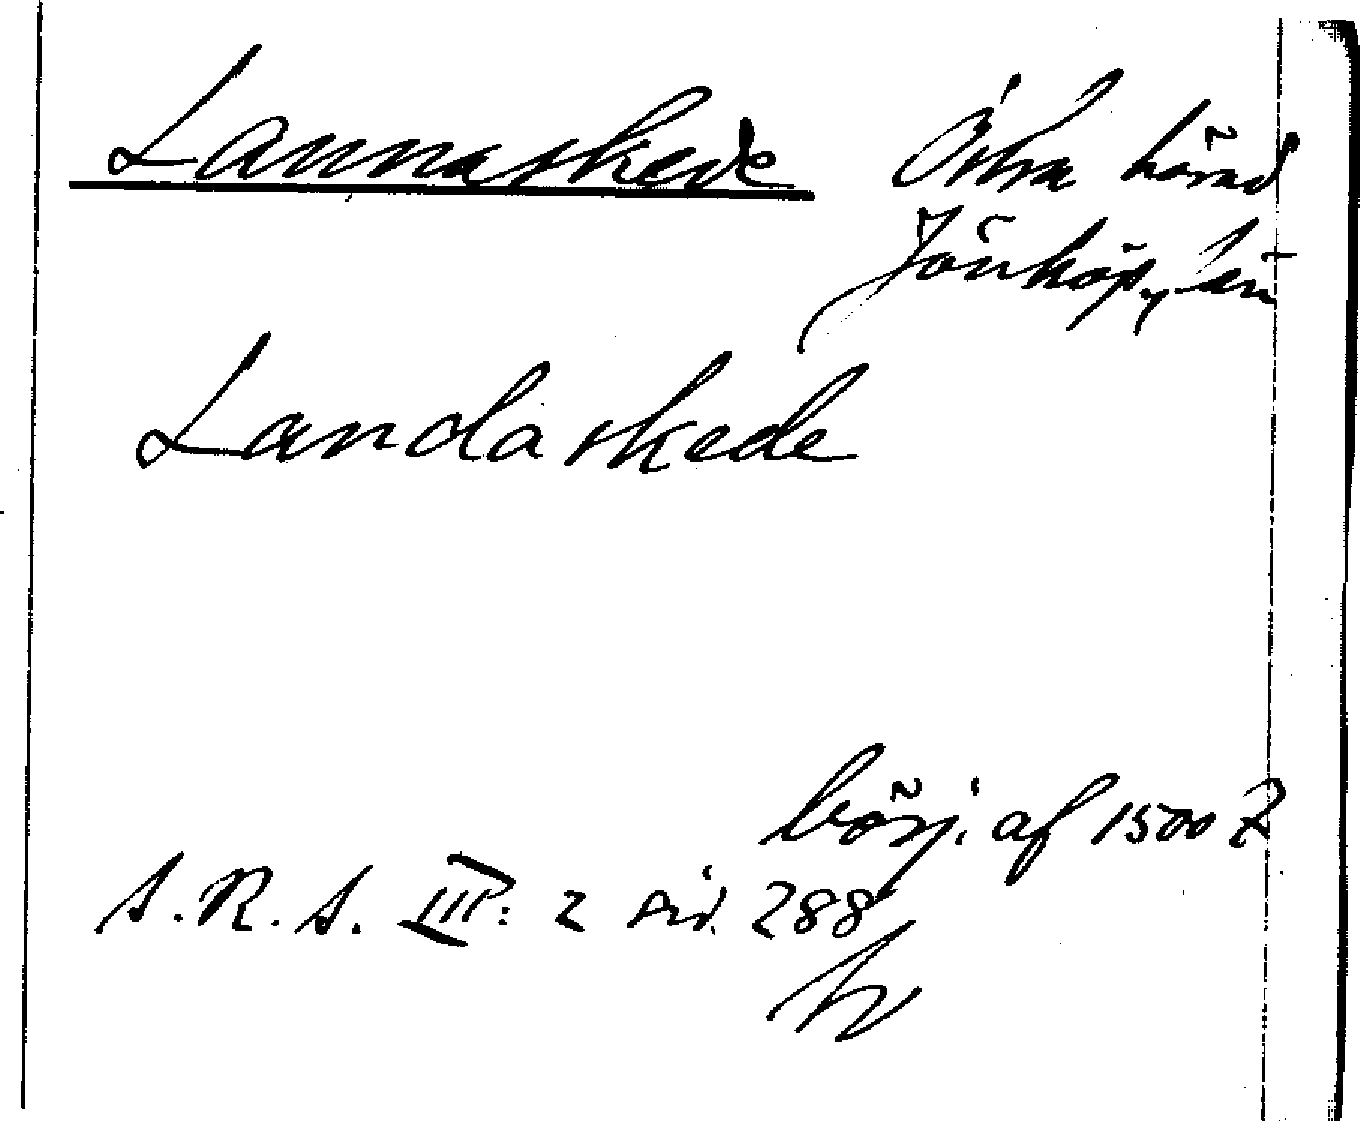 Lannaskede Östra härad
Jönköp. län
Landaskede
börj. af 1500 t
S. R. S. III: 2 sid. 288